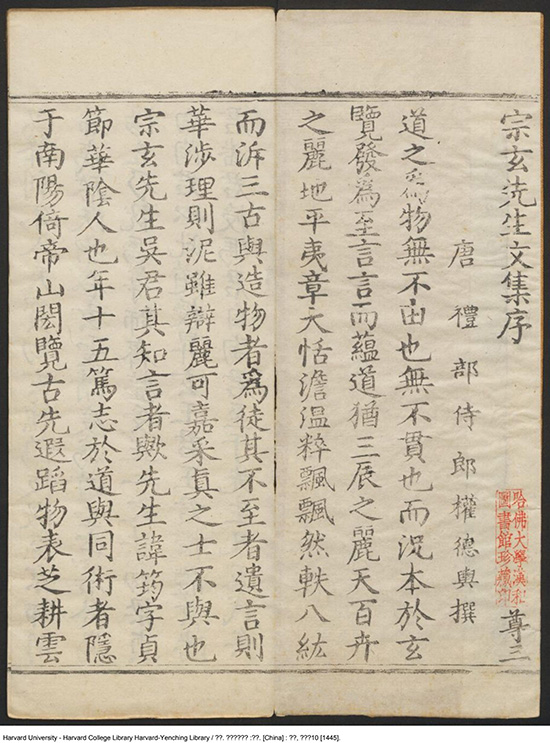 宗玄先生文集序
尊三
唐禮部侍郎權德輿撰
道之於物無不由也無不貫也而況本於玄
覽發為至言言而蘊道猶三辰之麗天百卉
之麗地平夷章大恬澹溫粹飄飄然軼八紘
而泝三古與造物者爲徒其不至者遺言則
華涉理則泥雖辯麗可嘉采真之士不與也
宗玄先生吳君其知言者歟先生諱筠字貞
節華陰人也年十五篤志於道與同術者隱
于南陽倚帝山閎覽古先遐蹈物表芝耕雲
哈佛大學漢和
圖書館珍藏印
Harvard University - Harvard College Library Harvard-Yenching Library / ??. ?????? :??. [China] : ??, ???10 [1445].